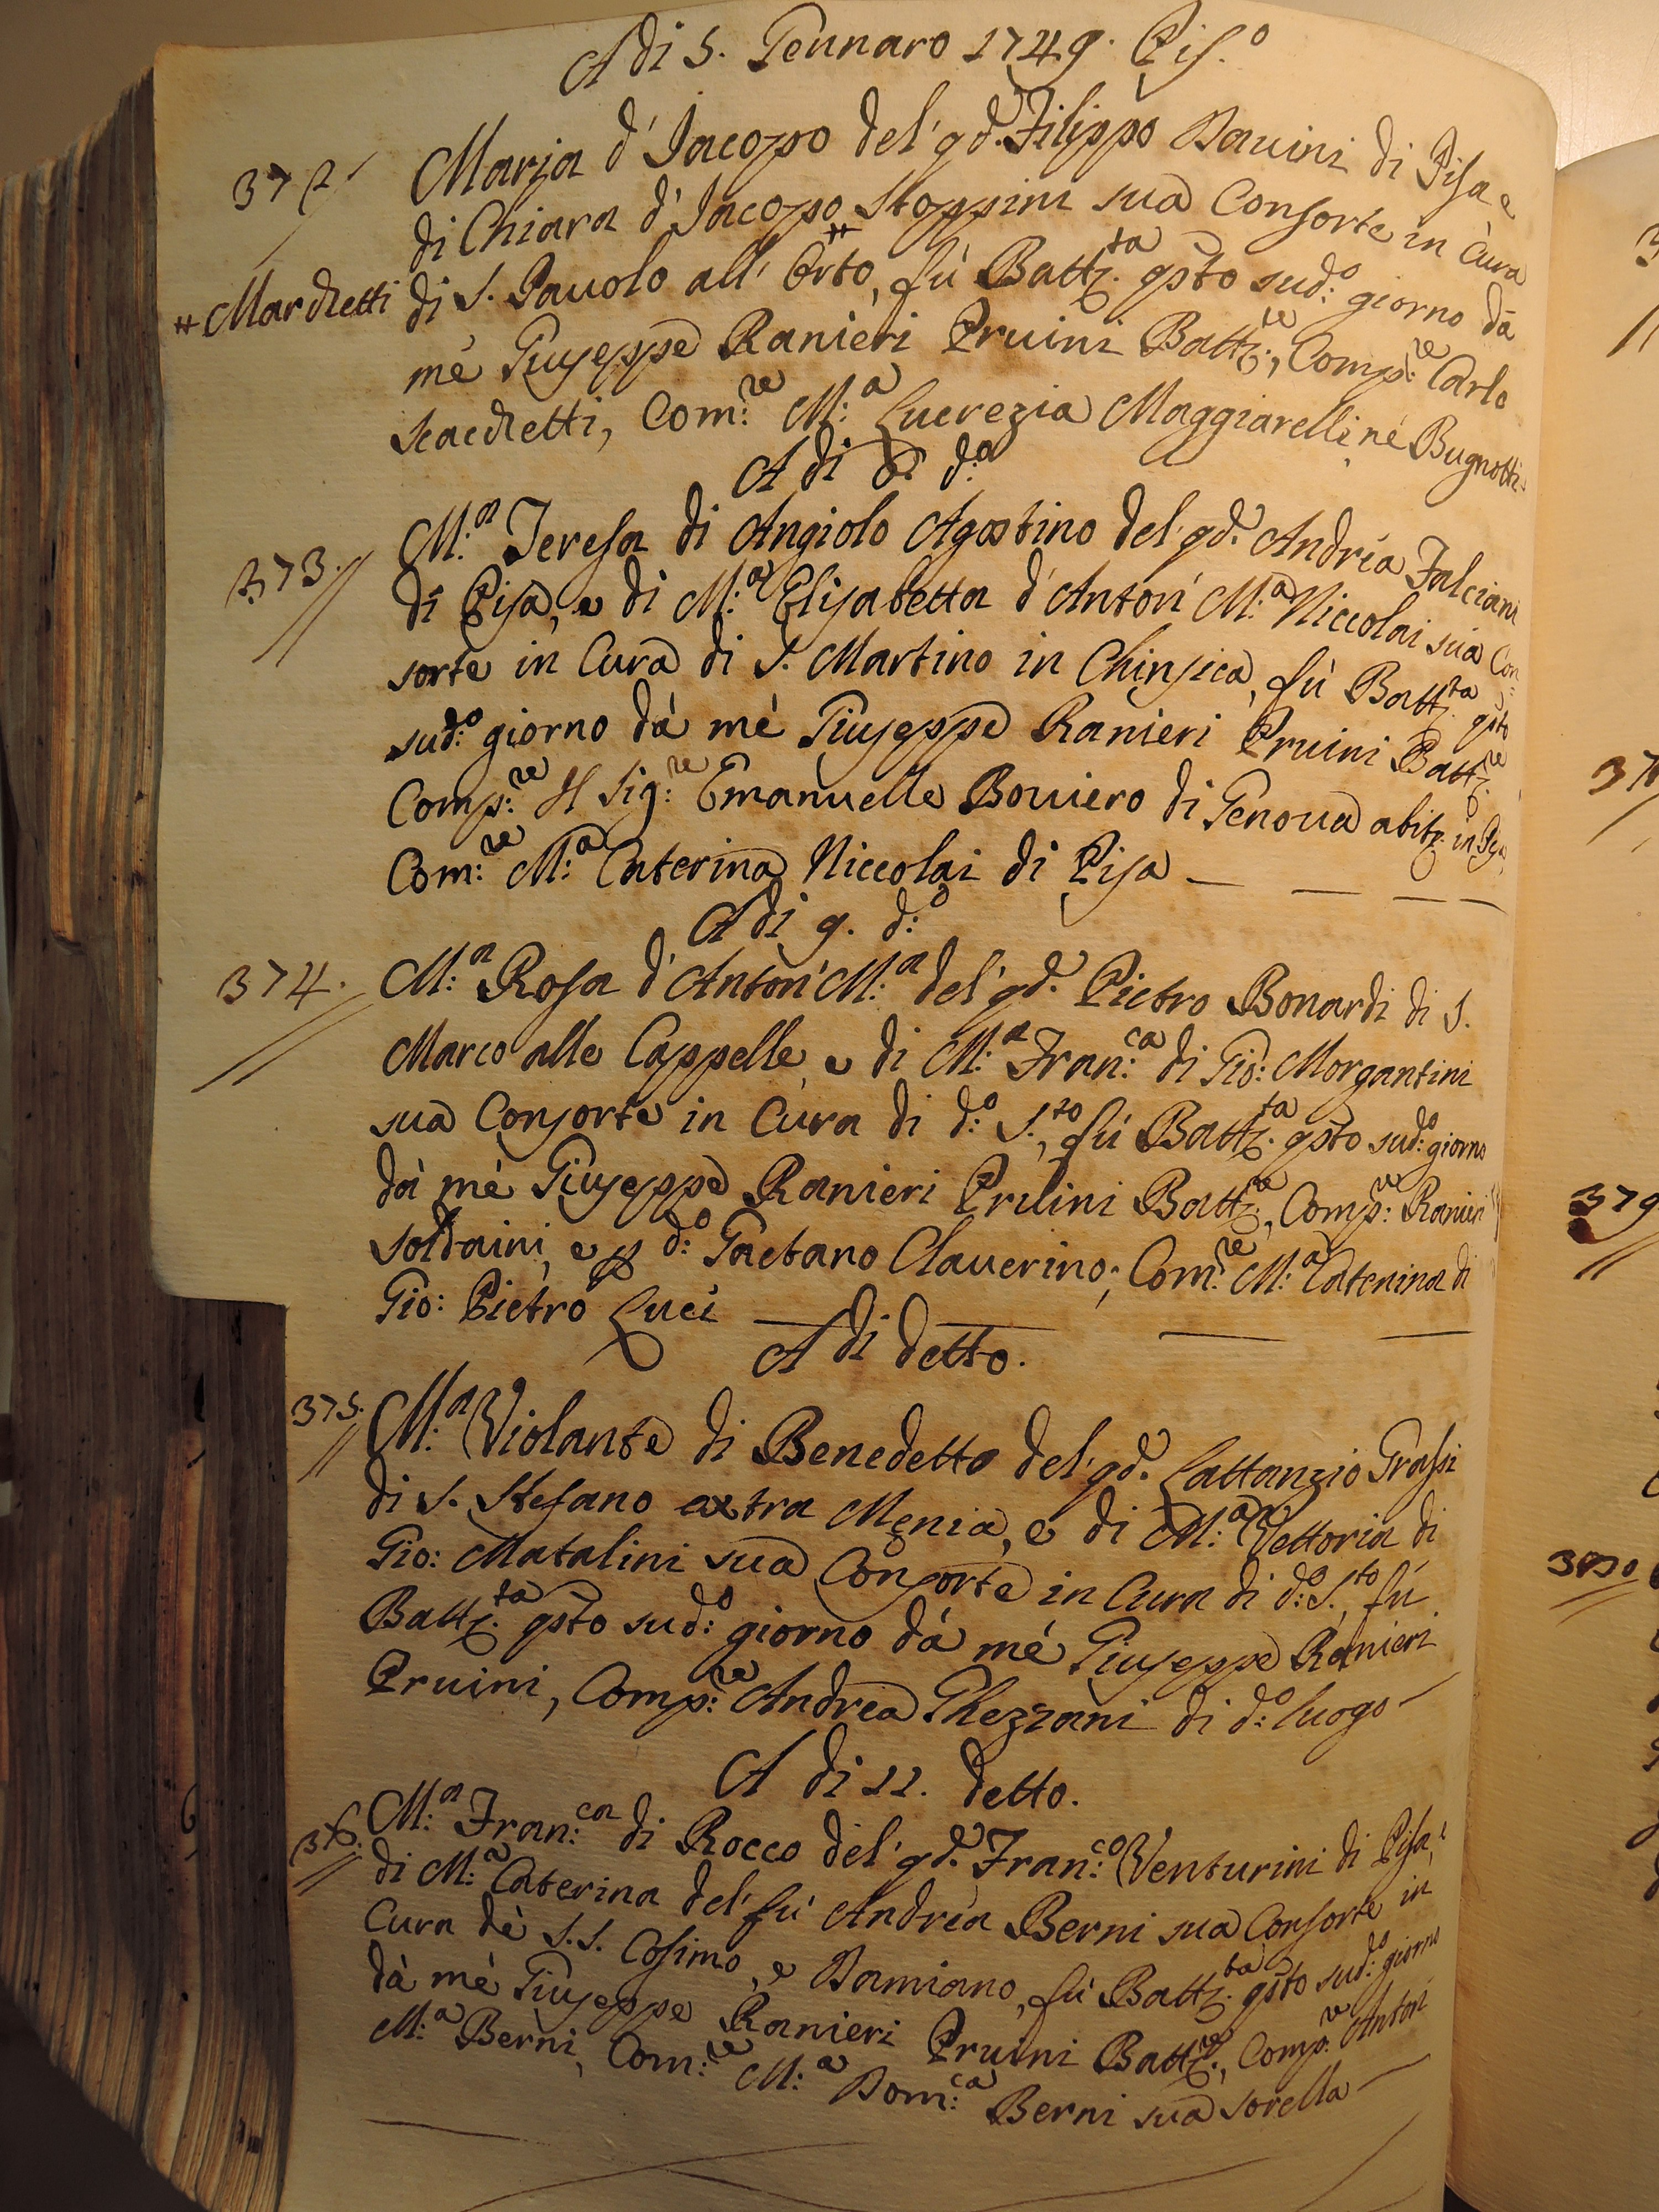 A di 5. Gennaro 1749. Pis.o
372 Maria d'Jacopo del' qd. Filippo Dauini di Pisa e
di Chiara d'Jacopo # Stoppini sua Consorte in Cura
# Marchetti di S. Pauolo all' Orto, fù Battz.ta qsto sud:o giorno dà
mé Giuseppe Ranieri Pruini Battz.re, Comp:re Carlo
Scachetti, Com:re M:a Lucrezia Maggiarelli né Bugnotti.
A di d:o
373. M:a Teresa di Angiolo Agostino del' qd. Andrea Falciani
di Pisa, e di M:a Elisabetta d'Anton' M:a Niccolai sua Con:
sorte in Cura di S. Martino in Chinsica, fù Battz.ta qsto
sud:o giorno dà mé Giuseppe Ranieri Pruini Battz.re
Comp:re Il Sig:re Emanuelle Bouiero di Genoua abitz. in Pisa,
Com:re M:a Caterina Niccolai di Pisa
A di 9. d:o
374. M:a Rosa d'Anton' M:a del' qd. Pietro Bonardi di S.
Marco alle Cappelle, e di M:a Fran:ca di Gio: Morgantini
sua Consorte in Cura di d:o S.to, fù Battz.ta qsto sud:o giorno
dà mé Giuseppe Ranieri Pruini Battz.re, Comp:re Ranieri
Soldaini, e p d:o Gaetano Clauerino, Com:re M:a Caterina di
Gio: Pietro Luci
A di detto.
375. M:a Violante di Benedetto del' qd. Lattanzio Grassi
di S. Stefano extra Menia, e di M:a Vettoria di
Gio: Matalini sua Consorte in Cura di d:o S.to, fù
Battz.ta qsto sud:o giorno dà mé Giuseppe Ranieri
Pruini, Comp:re Andrea Ghezzani di d:o luogo
A di 11. detto.
376. M:a Fran:ca di Rocco del' qd. Fran:co Venturini di Pisa, e
di M:a Caterina del' fù Andrea Berni sua Consorte in
Cura dè S.S. Cosimo, e Damiano, fù Battz.ta qsto sud:o giorno
dà mé Giuseppe Ranieri Pruini Battz.re, Comp:re Anton
M:a Berni, Com:re M:a Dom:ca Berni sua sorella
379